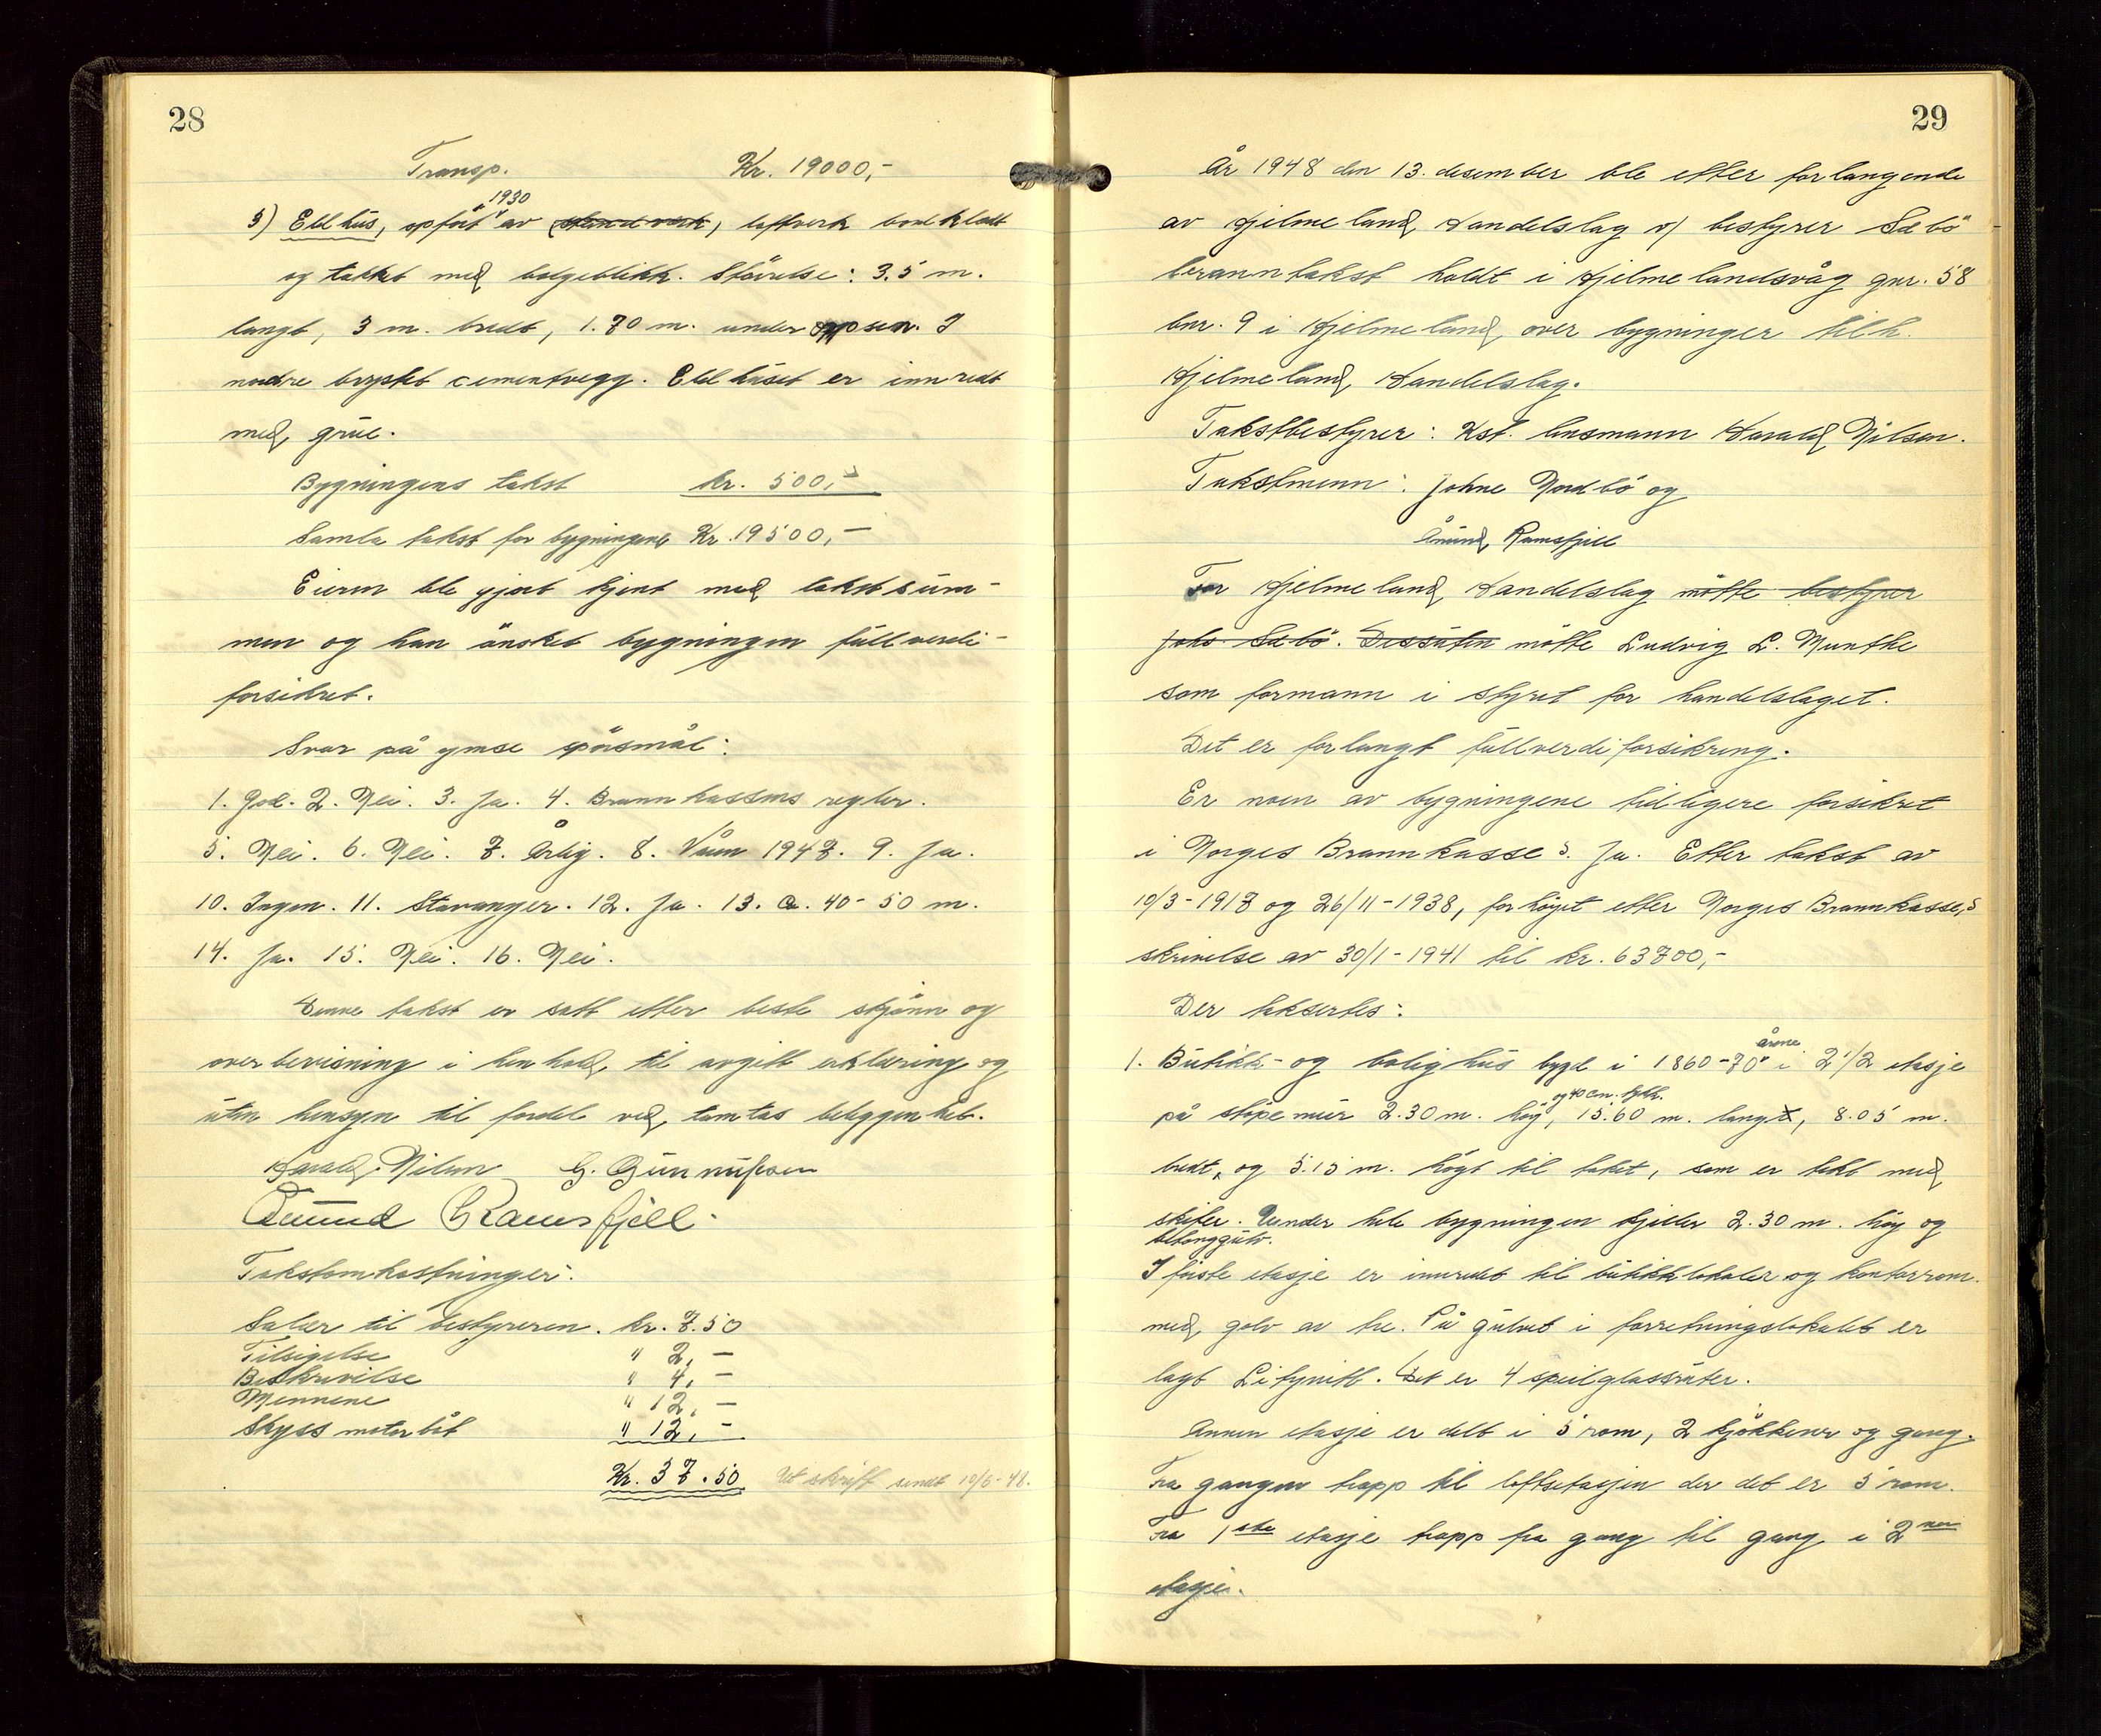 28
Transp. Kr. 19000,-
5) Eldhus, opfört 1930 av standverk, laftverk bordkledt
og takket med bølgeblikk. Störrelse: 3.5 m.
langt, 3 m. bredt, 1.70 m. under opsen. I
nordre cementvegg. Eldhuset er innredt
med grue.
Bygningens takst kr. 500,-
Samla takst for bygningene Kr. 19500,-
Eieren ble gjort kjent med takstsum-
men og han önsket bygningen fullverdi-
forsikret.
Svar på ymse spörsmål:
1. God. 2. Nei. 3. Ja. 4. Brannkassens regler.
5. Nei. 6. Nei. 7. Årlig. 8. Våren 1947. 9. Ja.
10. Ingen. 11. Stavanger. 12. Ja. 13. Ca. 40-50 m.
14. Ja. 15. Nei. 16. Nei.
Denne takst er satt etter beste skjönn og
overbevisning i henhold til avgitt erklæring og
uten hensyn til fordel ved tomtas beliggenhet.
Harald Nilsen G. Gunnufsen
Åmund Ramsfjell
Takstomkostninger:
Salær til bestyreren. kr. 7.50
Tilsigelse " 2,-
Beskrivelse " 4,-
Mennene " 12,-
Skyss motorbåt " 12,-
Kr. 37.50 Utskrift sendt 10/6-48.
29
År 1948 den 13. desember ble etter forlangende
av Hjelmeland Handelslag v/ bestyrer Sæbö
branntakst holdt i Hjelmelandsvåg gnr. 58
bnr. 9 i Hjelmeland over bygninger tilh.
Hjelmeland Handelslag.
Takstbestyrer: Kst. lensmann Harald Nilsen.
Takstmenn: Johne Nordbö og
Åmund Ramsfjell
For Hjelmeland Handelslag mötte bestyrer
Johs Sæbö. Dessuten mötte Ludvig L. Munthe
som formann i styret for handelslaget.
Det er forlangt fullverdiforsikring.
Er noen av bygningene tidligere forsikret
i Norges Brannkasse? Ja. Etter takst av
10/3-1917 og 26/11-1938, forhöyet etter Norges Brannkasse's
skrivelse av 30/1-1941 til kr. 63700,-
Der taksertes:
1. Butikk- og bolighus bygt i 1860-70 årene i 2 1/2 etasje
på stöpemur 2.30 m. höy, og 40 cm. tykk. 15.60 m. langt, 8.05 m.
bredt, og 5.15 m. högt til taket, som er tekt med
skifer. Under hele bygningen kjeller 2.30 m. höy og
betonggulv.
I förste etasje er innredet til butikklokaler og kontorrom
med golv av tre. På gulvet i forretningslokalet er
lagt. Det er 4 speilglassruter.
Annen etasje er delt i 5 rom, 2 kjökkener og gang.
Fra gangen trapp til loftsetasjen der det er 5 rom.
Fra 1ste etasje trapp fra gang til gang i 2nen
etasje.